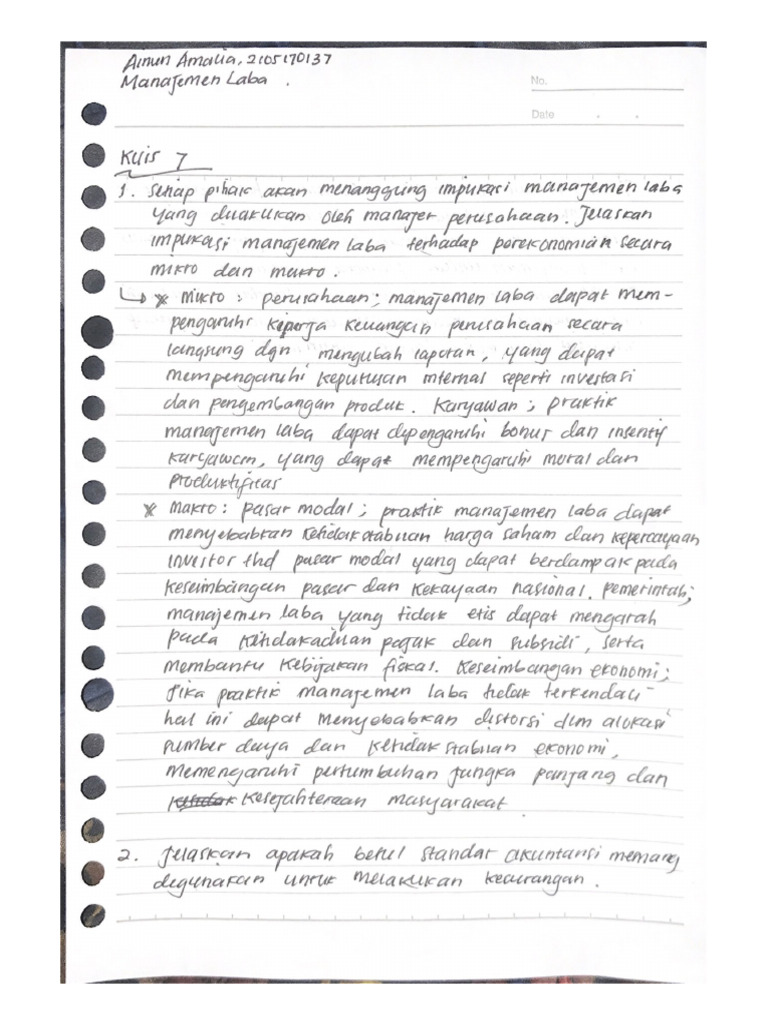 Ainun Amalia, 2105170137
Manajemen Laba .
No.
Date
Kuis 7
1. Setiap pihak akan menanggung implikasi manajemen laba
yang dilakukan oleh manajer perusahaan. Jelaskan
implikasi manajemen laba terhadap perekonomian secara
mikro dan makro.
* Mikro : perusahaan; manajemen laba dapat mem-
pengaruhi kinerja keuangan perusahaan secara
langsung dgn mengubah laporan, yang dapat
mempengaruhi keputusan internal seperti investasi
dan pengembangan produk. Karyawan; praktik
manajemen laba dapat dipengaruhi bonus dan insentif
karyawan, yang dapat mempengaruhi moral dan
produktifitas
* Makro : pasar modal; praktik manajemen laba dapat
menyebabkan ketidakstabilan harga saham dan kepercayaan
investor thd pasar modal yang dapat berdampak pada
keseimbangan pasar dan kekayaan nasional. pemerintah;
manajemen laba yang tidak etis dapat mengarah
pada ketidakadilan pajak dan subsidi, serta
membantu kebijakan fiskal. Keseimbangan ekonomi;
jika praktik manajemen laba tidak terkendali
hal ini dapat menyebabkan distorsi dlm alokasi
sumber daya dan ketidakstabilan ekonomi,
memengaruhi pertumbuhan jangka panjang dan
kesejahteraan masyarakat
2. Jelaskan apakah betul standar akuntansi memang
digunakan untuk melakukan kecurangan.